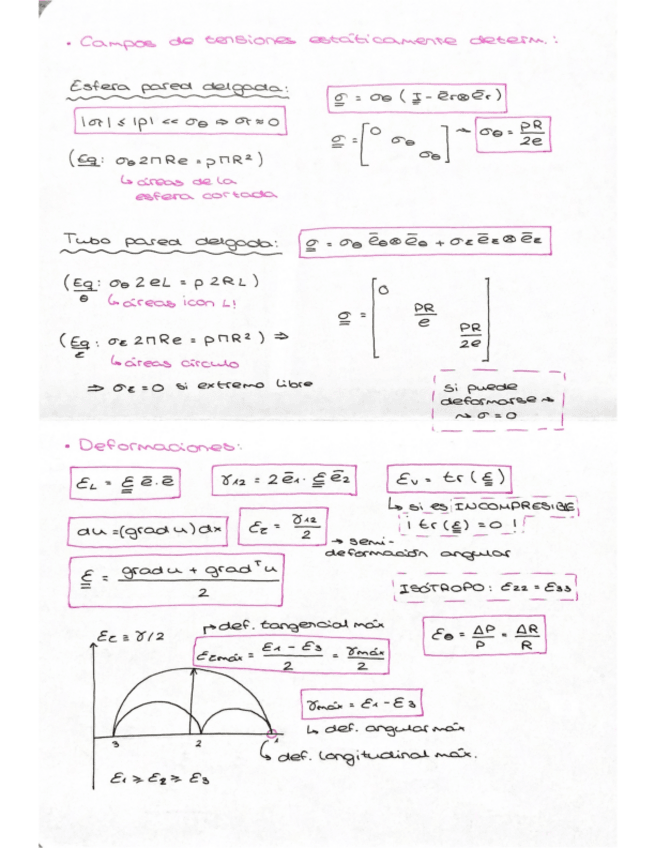 • Campos de tensiones estáticamente determ.:
Esfera pared delgada:
σ = σθ ( I - ēr⊗ēr )
|σr| ≤ |p| << σθ ⇒ σr ≈ 0
σ = [ 0 σθ σθ ] → σθ = pR/2e
(Eq: σθ 2πRe = pπR²)
↳ áreas de la
esfera cortada
Tubo pared delgada:
σ = σθ ēθ⊗ēθ + σz ēz⊗ēz
(Eq θ: σθ 2eL = p 2RL)
↳ áreas ¡con L!
σ = [ 0 pR/e pR/2e ]
(Eq z: σz 2πRe = pπR²) ⇒
↳ áreas círculo
⇒ σz = 0 si extremo libre
Si puede
deformarse →
↝ σ = 0
• Deformaciones:
εL = ε ē · ē
γ12 = 2 ē1 · ε ē2
εv = tr(ε)
↳ si es INCOMPRESIBLE
¡ tr(ε) = 0 !
du = (grad u) dx
εt = γ12/2
→ semi-
deformación angular
ε = (grad u + gradᵀ u)/2
ISÓTROPO: ε22 = ε33
εt ≡ γ/2
↱ def. tangencial máx
εtmáx = (ε1 - ε3)/2 = γmáx/2
εθ = ΔP/P = ΔR/R
γmáx = ε1 - ε3
↳ def. angular máx
3 2 1
↳ def. longitudinal máx.
ε1 ≥ ε2 ≥ ε3